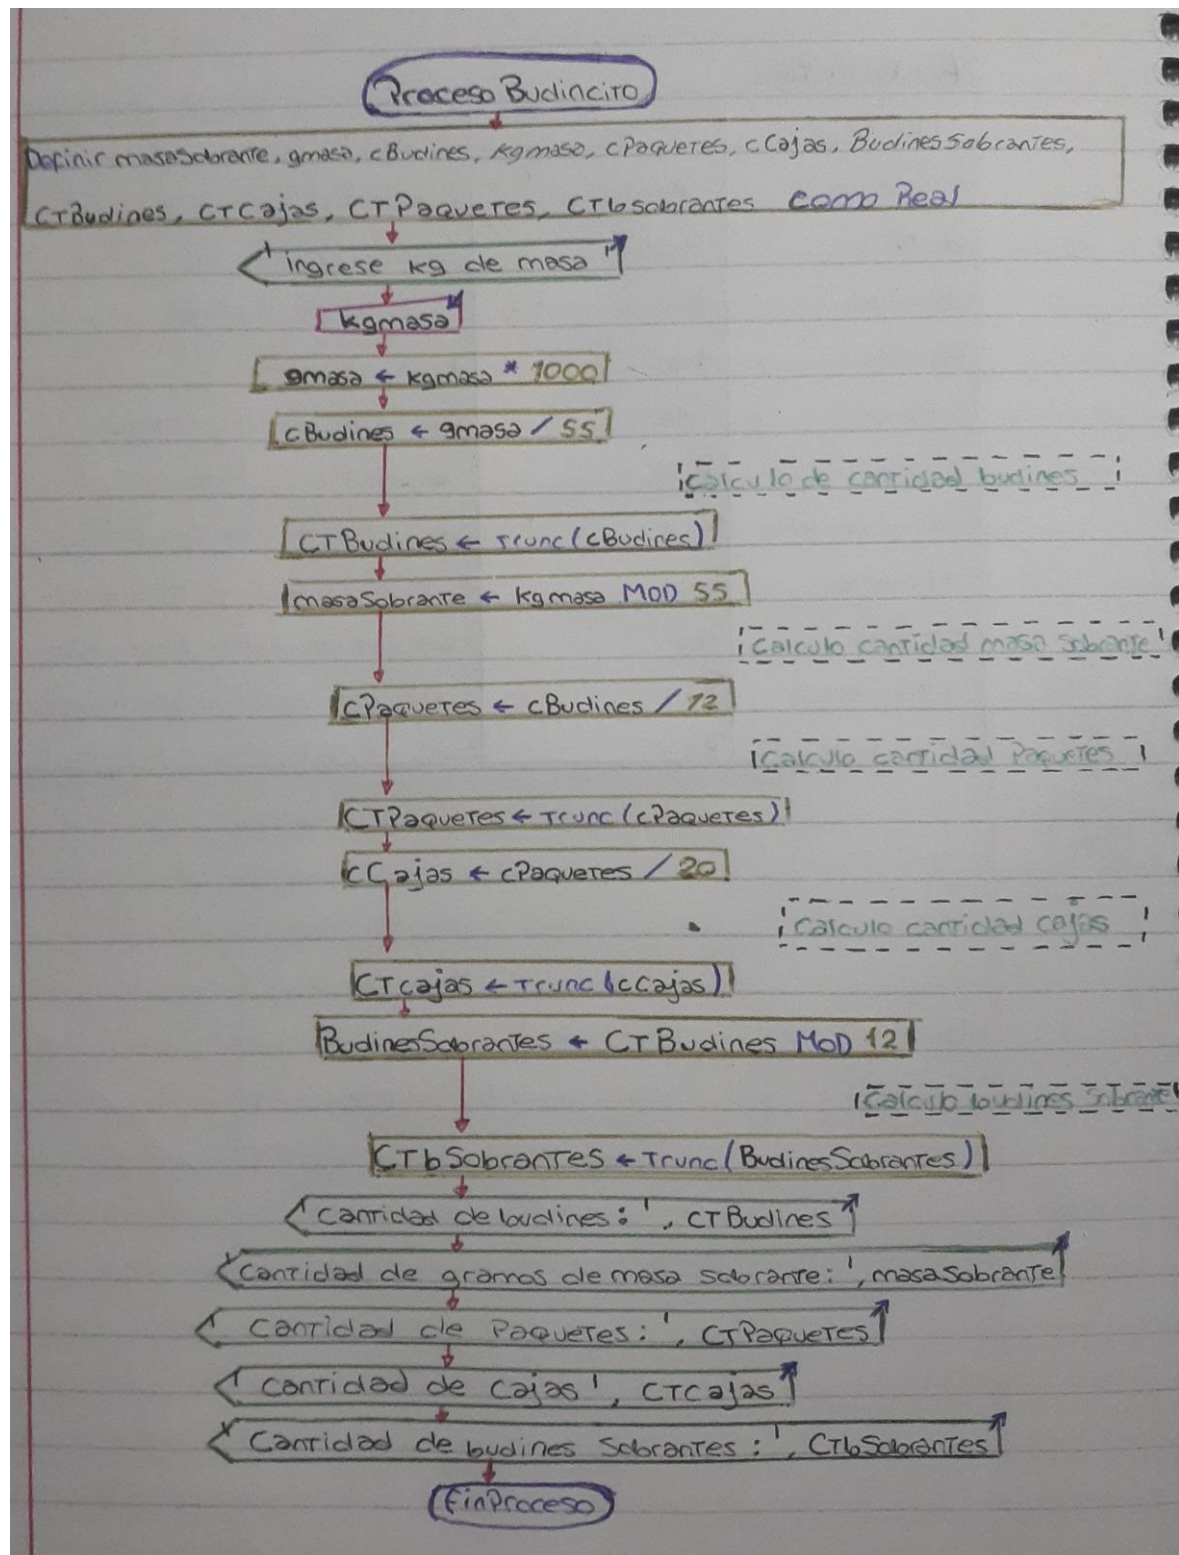 Proceso Budincito
Definir masaSobrante, gmasa, cBudines, kgmasa, cPaquetes, cCajas, BudinesSobrantes,
CTBudines, CTCajas, CTPaquetes, CTbsobrantes como Real
'ingrese kg de masa'
kgmasa
gmasa ← kgmasa * 1000
cBudines ← gmasa / 55
Calculo de cantidad budines
CTBudines ← trunc(cBudines)
masaSobrante ← kgmasa MOD 55
Calculo cantidad masa sobrante
cPaquetes ← cBudines / 12
Calculo cantidad Paquetes
CTPaquetes ← Trunc(cPaquetes)
cCajas ← cPaquetes / 20
Calculo cantidad cajas
CTcajas ← Trunc(cCajas)
BudinesSobrantes ← CTBudines MOD 12
Calculo budines sobrante
CTbSobrantes ← Trunc(BudinesSobrantes)
'Cantidad de budines: ', CTBudines
'Cantidad de gramos de masa sobrante: ', masaSobrante
'Cantidad de Paquetes: ', CTPaquetes
'Cantidad de Cajas', CTCajas
'Cantidad de budines Sobrantes: ', CTbSobrantes
FinProceso